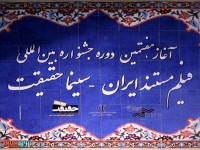 آغاز هفتمین دوره جشنواره بین المللی
فیلم مستند ایران - سینما حقیقت
حقیقت